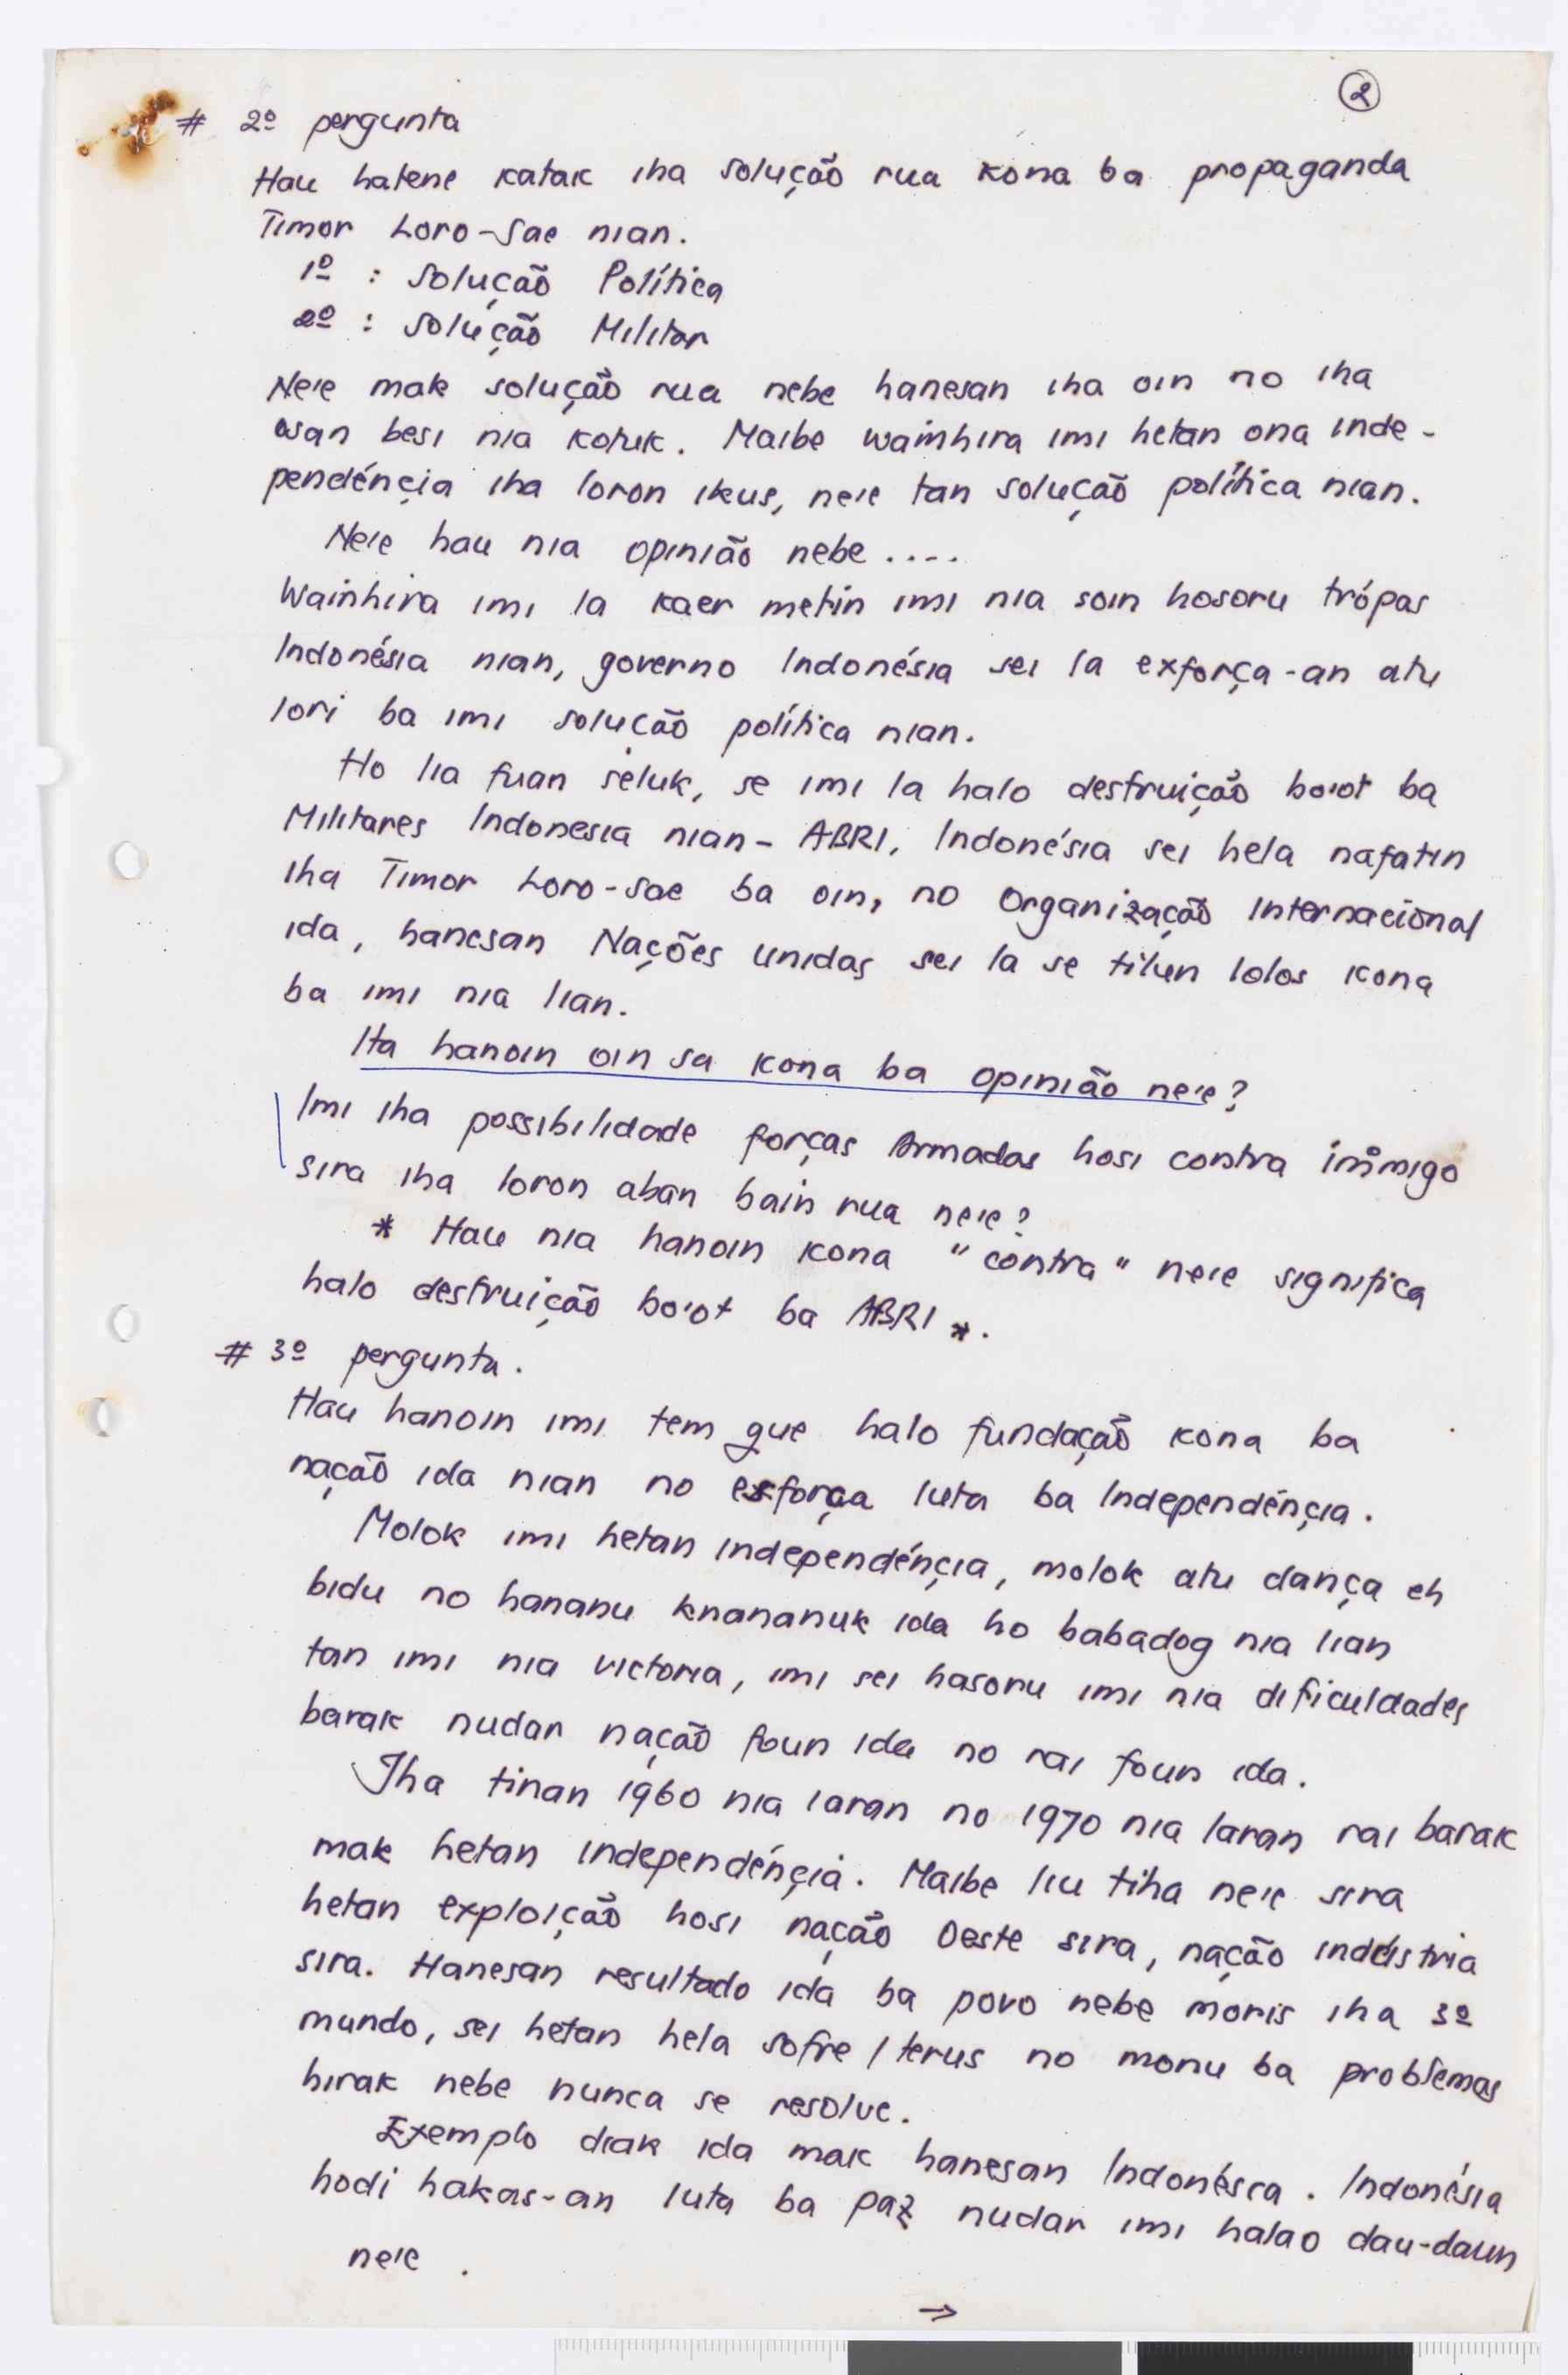 ②
# 2º pergunta
Hau hatene katak iha solução rua kona ba propaganda
Timor Loro-Sae nian.
1º : Solução Política
2º : Solução Militar
Neie mak solução rua nebe hanesan iha oin no iha
osan besi nia kotuk. Maibe wainhira imi hetan ona inde-
pendénçia iha loron ikus, neie tan solução política nian.
Neie hau nia opinião nebe ....
Wainhira imi la kaer metin imi nia soin hosoru trópas
Indonésia nian, governo Indonésia sei la exforça-an atu
lori ba imi solução política nian.
Ho lia fuan seluk, se imi la halo destruição bo'ot ba
Militares Indonesia nian - ABRI, Indonésia sei hela nafatin
iha Timor Loro-Sae ba oin, no Organização Internacional
ida, hanesan Nações Unidas sei la se tilun lolos kona
ba imi nia lian.
Ita hanoin oin sa kona ba opinião neie?
Imi iha possibilidade forças Armadas hosi contra inimigo
sira iha loron aban bain rua neie?
* Hau nia hanoin kona "contra" neie significa
halo destruição bo'ot ba ABRI *.
# 3º pergunta.
Hau hanoin imi tem que halo fundação kona ba
nação ida nian no esforça luta ba Independénçia.
Molok imi hetan independénçia, molok atu dança eh
bidu no hananu knananuk ida ho babadog nia lian
tan imi nia victoria, imi sei hasoru imi nia dificuldades
barak nudar nação foun ida no rai foun ida.
Iha tinan 1960 nia laran no 1970 nia laran rai barak
mak hetan independénçia. Maibe liu tiha neie sira
hetan exploição hosi nação Oeste sira, nação indústria
sira. Hanesan resultado ida ba povo nebe moris iha 3º
mundo, sei hetan hela sofre / terus no monu ba problemas
hirak nebe nunca se resolve.
Exemplo diak ida mak hanesan Indonésia. Indonésia
hodi hakas-an luta ba paz nudar imi halao dau-daun
neie.
→